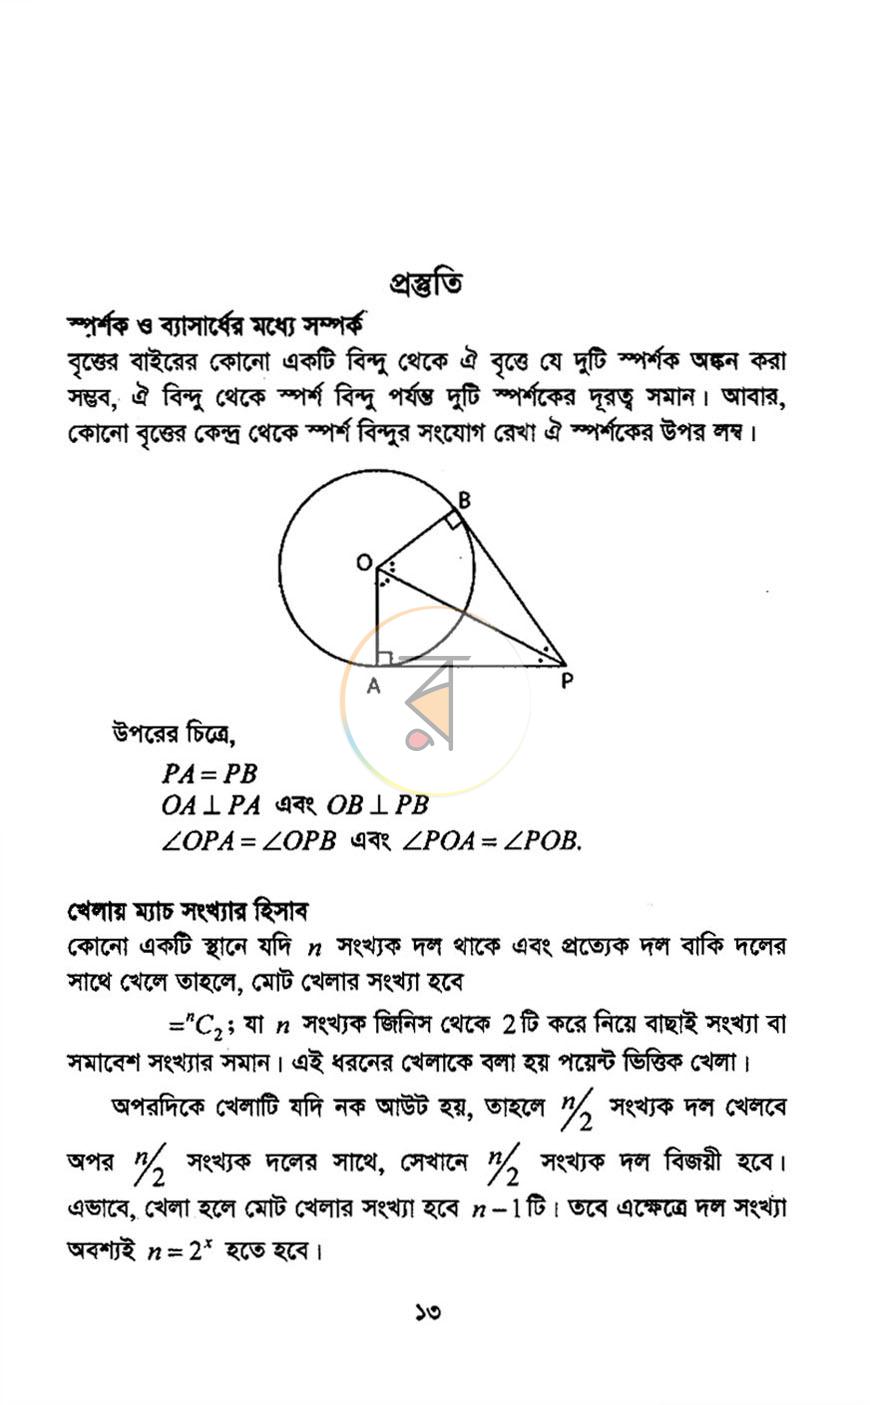 প্রস্তুতি
স্পর্শক ও ব্যাসার্ধের মধ্যে সম্পর্ক
বৃত্তের বাইরের কোনো একটি বিন্দু থেকে ঐ বৃত্তে যে দুটি স্পর্শক অঙ্কন করা
সম্ভব, ঐ বিন্দু থেকে স্পর্শ বিন্দু পর্যন্ত দুটি স্পর্শকের দূরত্ব সমান। আবার,
কোনো বৃত্তের কেন্দ্র থেকে স্পর্শ বিন্দুর সংযোগ রেখা ঐ স্পর্শকের উপর লম্ব।
B
O
A
P
র
উপরের চিত্রে,
PA = PB
OA ⊥ PA এবং OB ⊥ PB
∠OPA = ∠OPB এবং ∠POA = ∠POB.
খেলায় ম্যাচ সংখ্যার হিসাব
কোনো একটি স্থানে যদি n সংখ্যক দল থাকে এবং প্রত্যেক দল বাকি দলের
সাথে খেলে তাহলে, মোট খেলার সংখ্যা হবে
=ⁿC₂; যা n সংখ্যক জিনিস থেকে 2টি করে নিয়ে বাছাই সংখ্যা বা
সমাবেশ সংখ্যার সমান। এই ধরনের খেলাকে বলা হয় পয়েন্ট ভিত্তিক খেলা।
অপরদিকে খেলাটি যদি নক আউট হয়, তাহলে n/2 সংখ্যক দল খেলবে
অপর n/2 সংখ্যক দলের সাথে, সেখানে n/2 সংখ্যক দল বিজয়ী হবে।
এভাবে, খেলা হলে মোট খেলার সংখ্যা হবে n – 1টি। তবে এক্ষেত্রে দল সংখ্যা
অবশ্যই n = 2ˣ হতে হবে।
১৩